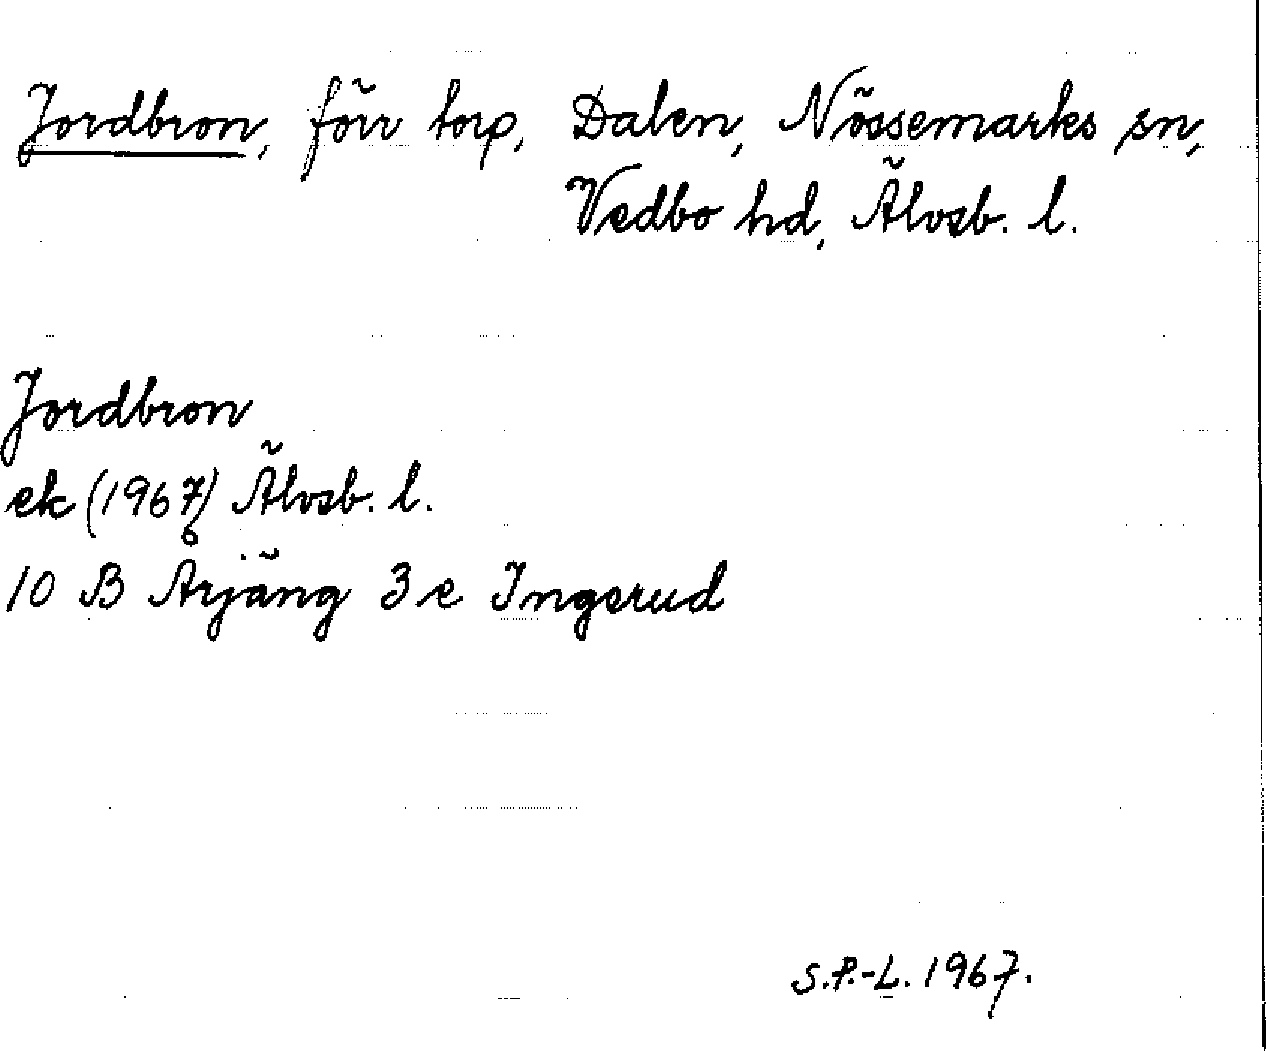 Jordbron, förr torp, Dalen, Nössemarks sn,
Vedbo hd, Älvsb. l.
Jordbron
ek (1967) Älvsb. l.
10 B Årjäng 3 e Ingerud
S.P.-L. 1967.